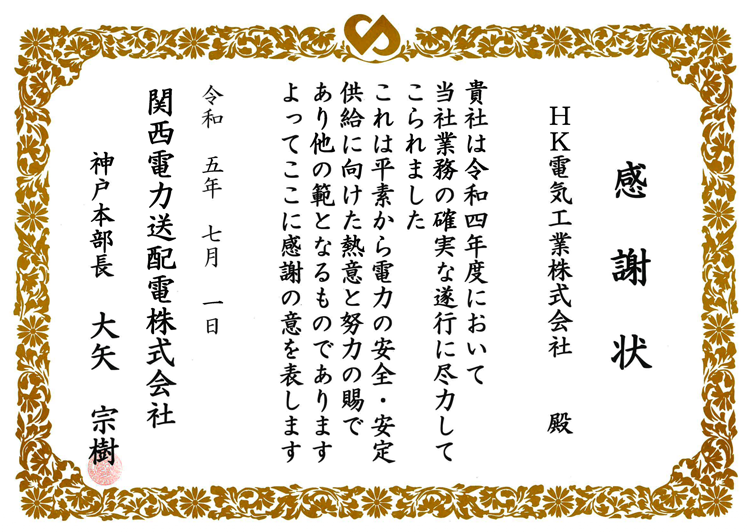 感謝状
HK電気工業株式会社 殿
貴社は令和四年度において
当社業務の確実な遂行に尽力して
こられました
これは平素から電力の安全・安定
供給に向けた熱意と努力の賜で
あり他の範となるものであります
よってここに感謝の意を表します
令和 五年 七月 一日
関西電力送配電株式会社
神戸本部長 大矢 宗樹